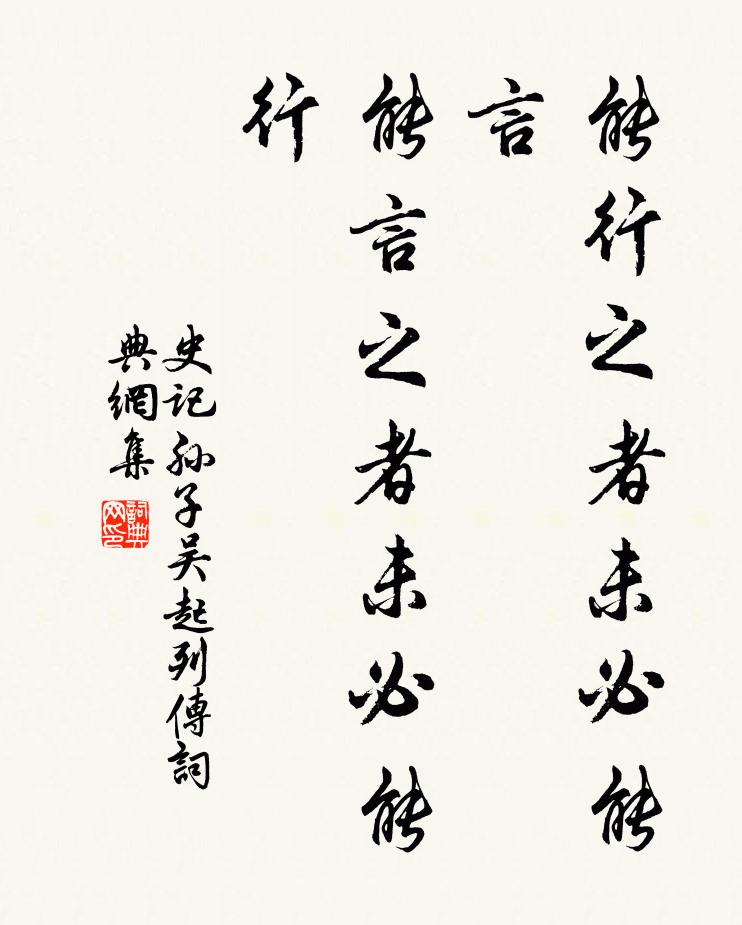 能行之者未必能
言
能言之者未必能
行
史记孙子吴起列傳詞
典網集
詞典
网印